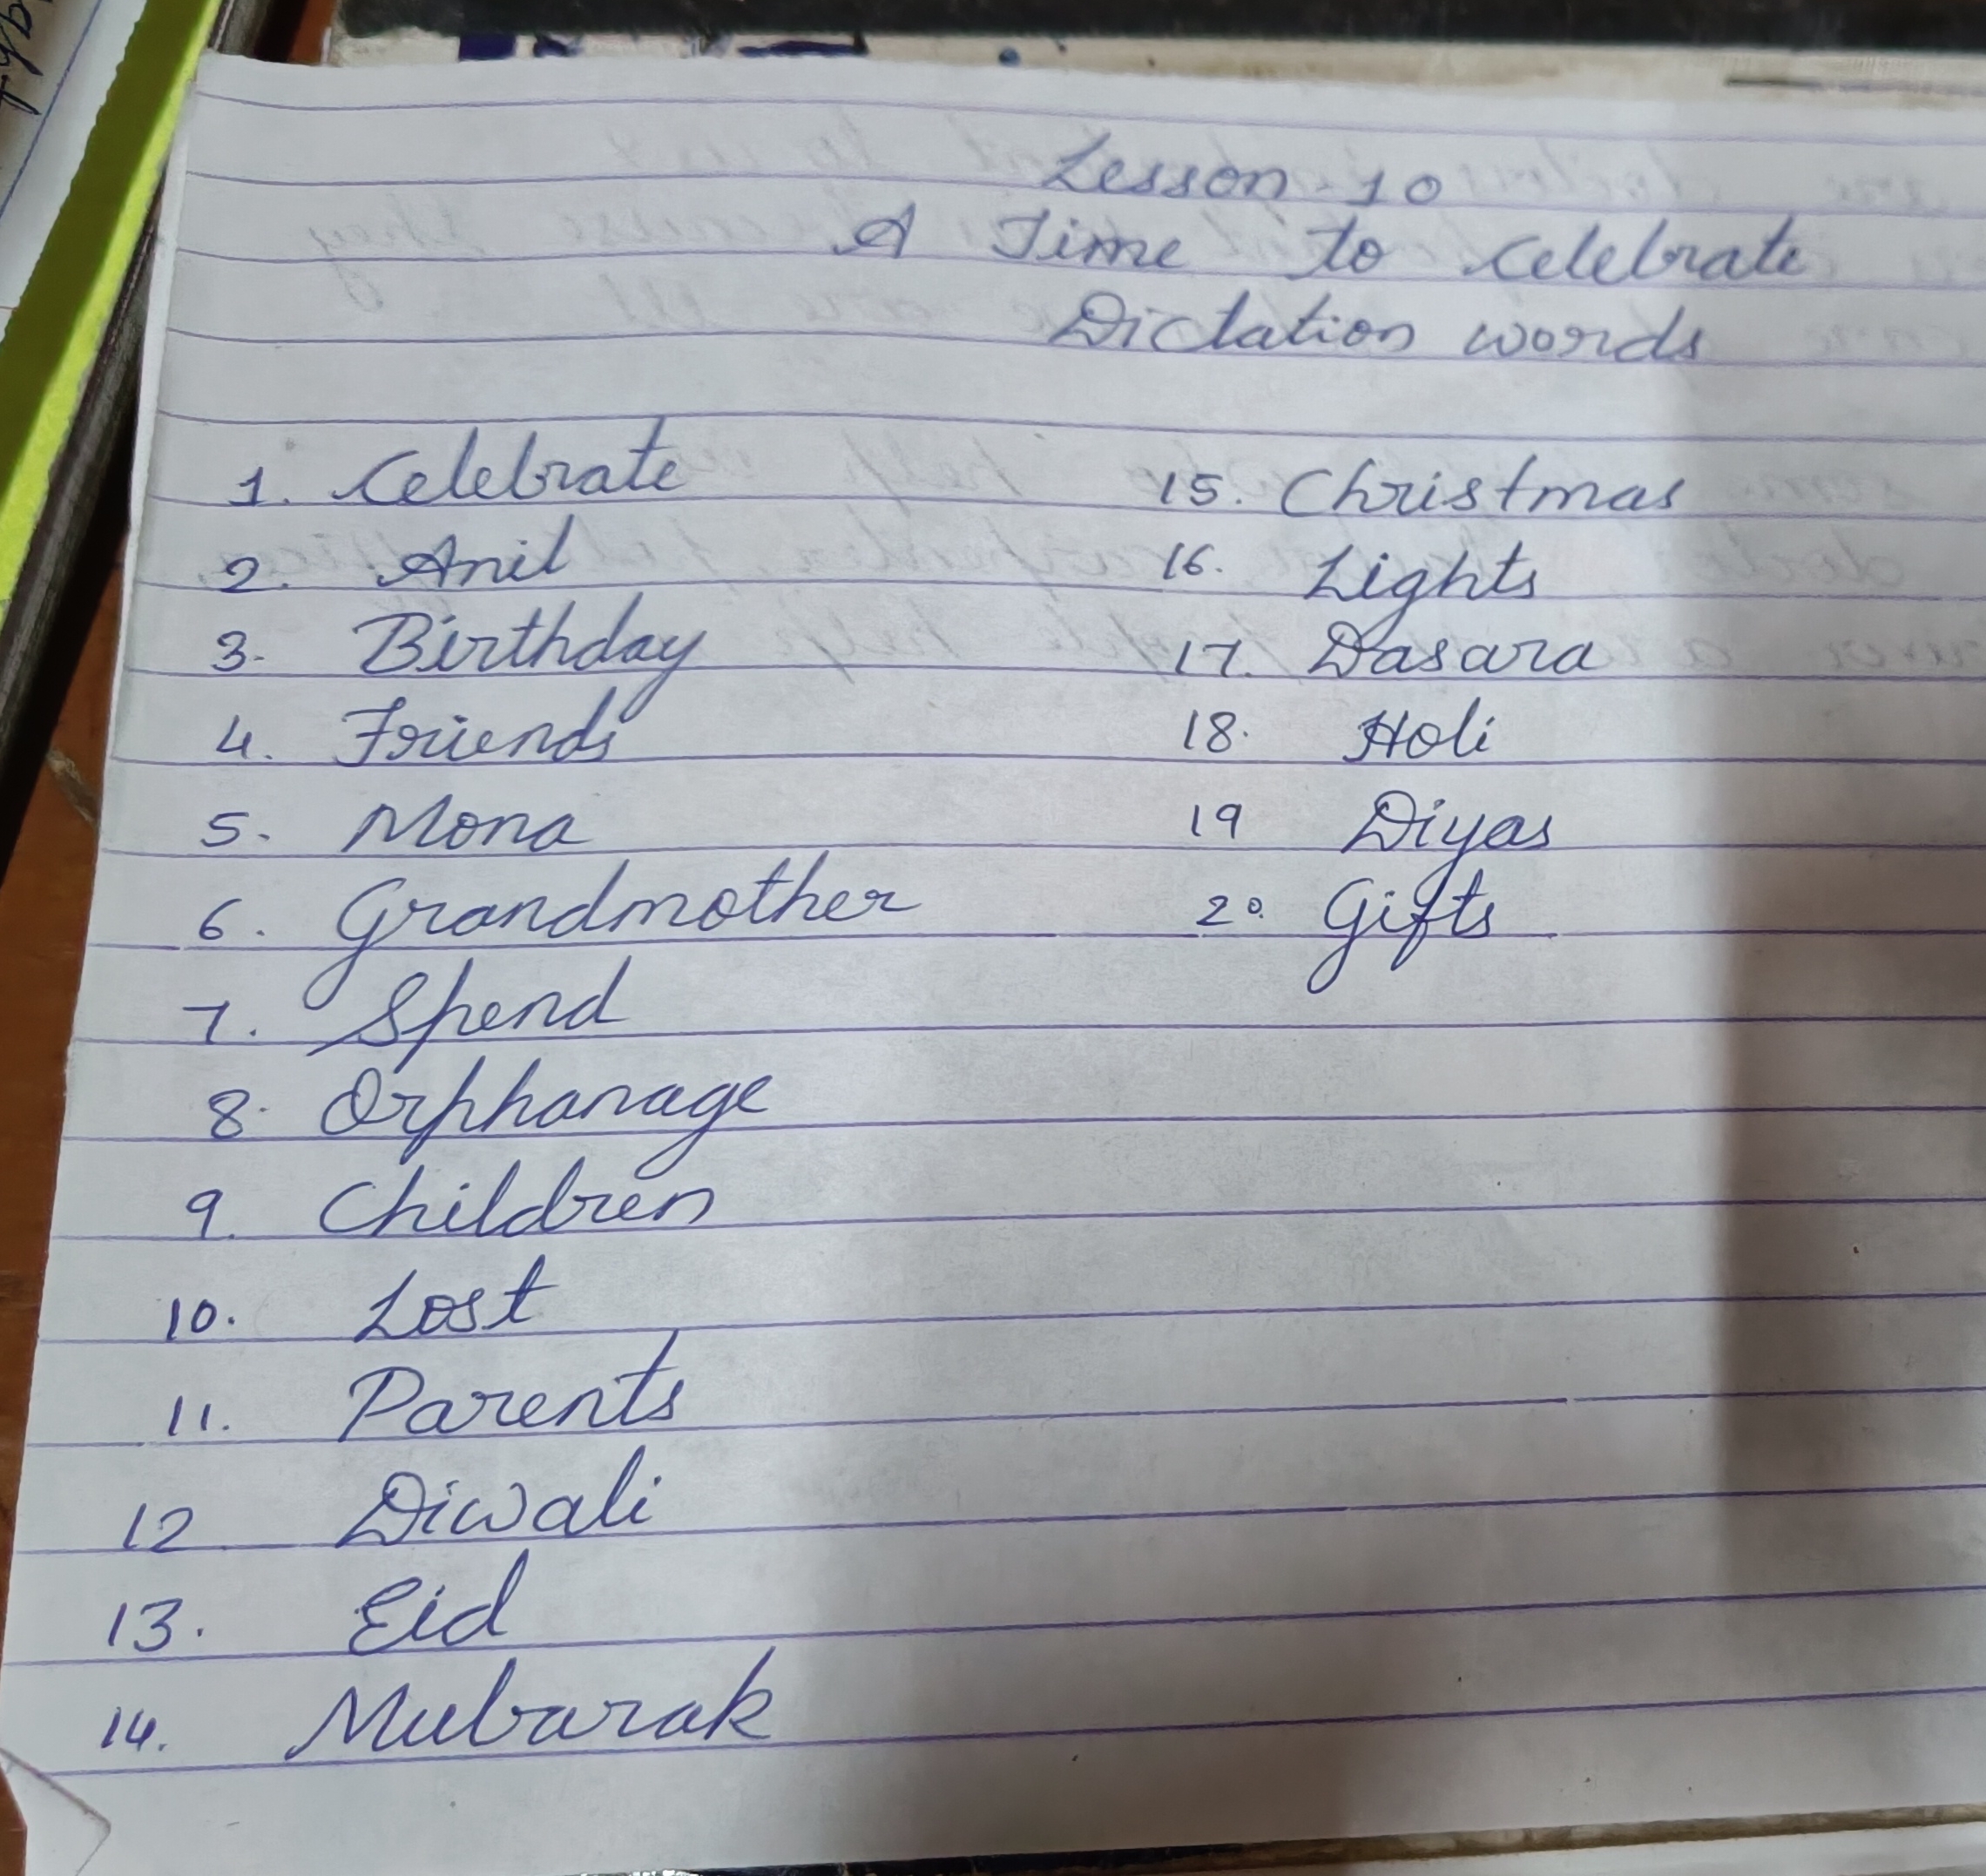 Lesson-10
A Time to celebrate
Dictation words
1. Celebrate
2. Anil
3. Birthday
4. Friends
5. Mona
6. Grandmother
7. Spend
8. Orphanage
9. Children
10. Lost
11. Parents
12 Diwali
13. Eid
14. Mubarak
15. Christmas
16. Lights
17. Dasara
18. Holi
19 Diyas
20. Gifts